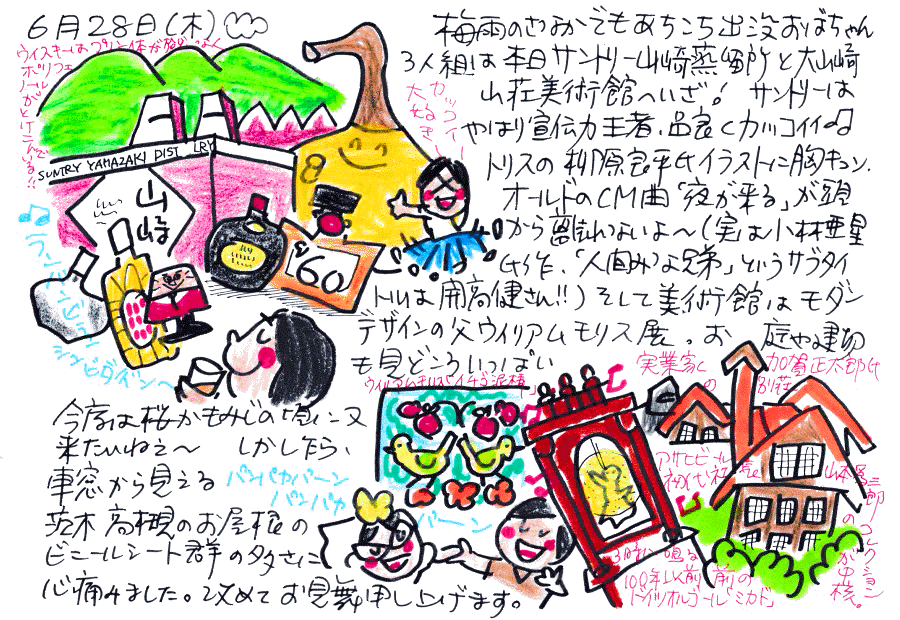 6月28日(木)
梅雨のさなかでもあちこち出没おばちゃん
3人組は本日サントリー山崎蒸留所と大山崎
山荘美術館へいざ! サントリーは
やはり宣伝力王者、品良くカッコイイ♫
トリスの柳原良平氏イラストに胸キュン.
オールドのCM曲「夜が来る」が頭
から離れないよ〜(実は小林亜星
氏作、「人間みな兄弟」というサブタイ
トルは開高健さん!!)そして美術館はモダン
デザインの父ウィリアムモリス展。お庭や建物
も見どころいっぱい
ウイスキーは
ポリフェ
ノールが
カッコイイ
大好き
SUNTRY YAMAZAKI DIST LRY
山崎
60
♫ランランビラン
シュビダドン〜
今度は桜かもみじの頃に又
来たいねえ〜 しかしたら、
車窓から見える
茨木高槻のお屋根の
ビニールシート群の多さに
心痛みました。改めてお見舞申し上げます。
パンパカパーン
パンパカ
パーン
ウィリアムモリスイチゴ泥棒
実業家の
加賀正太郎氏
別荘
アサヒビール
初代社長
山本為三郎
のコレクション
が中核。
3時に鳴る
100年以上前の
ドイツオルゴール「ミカド」